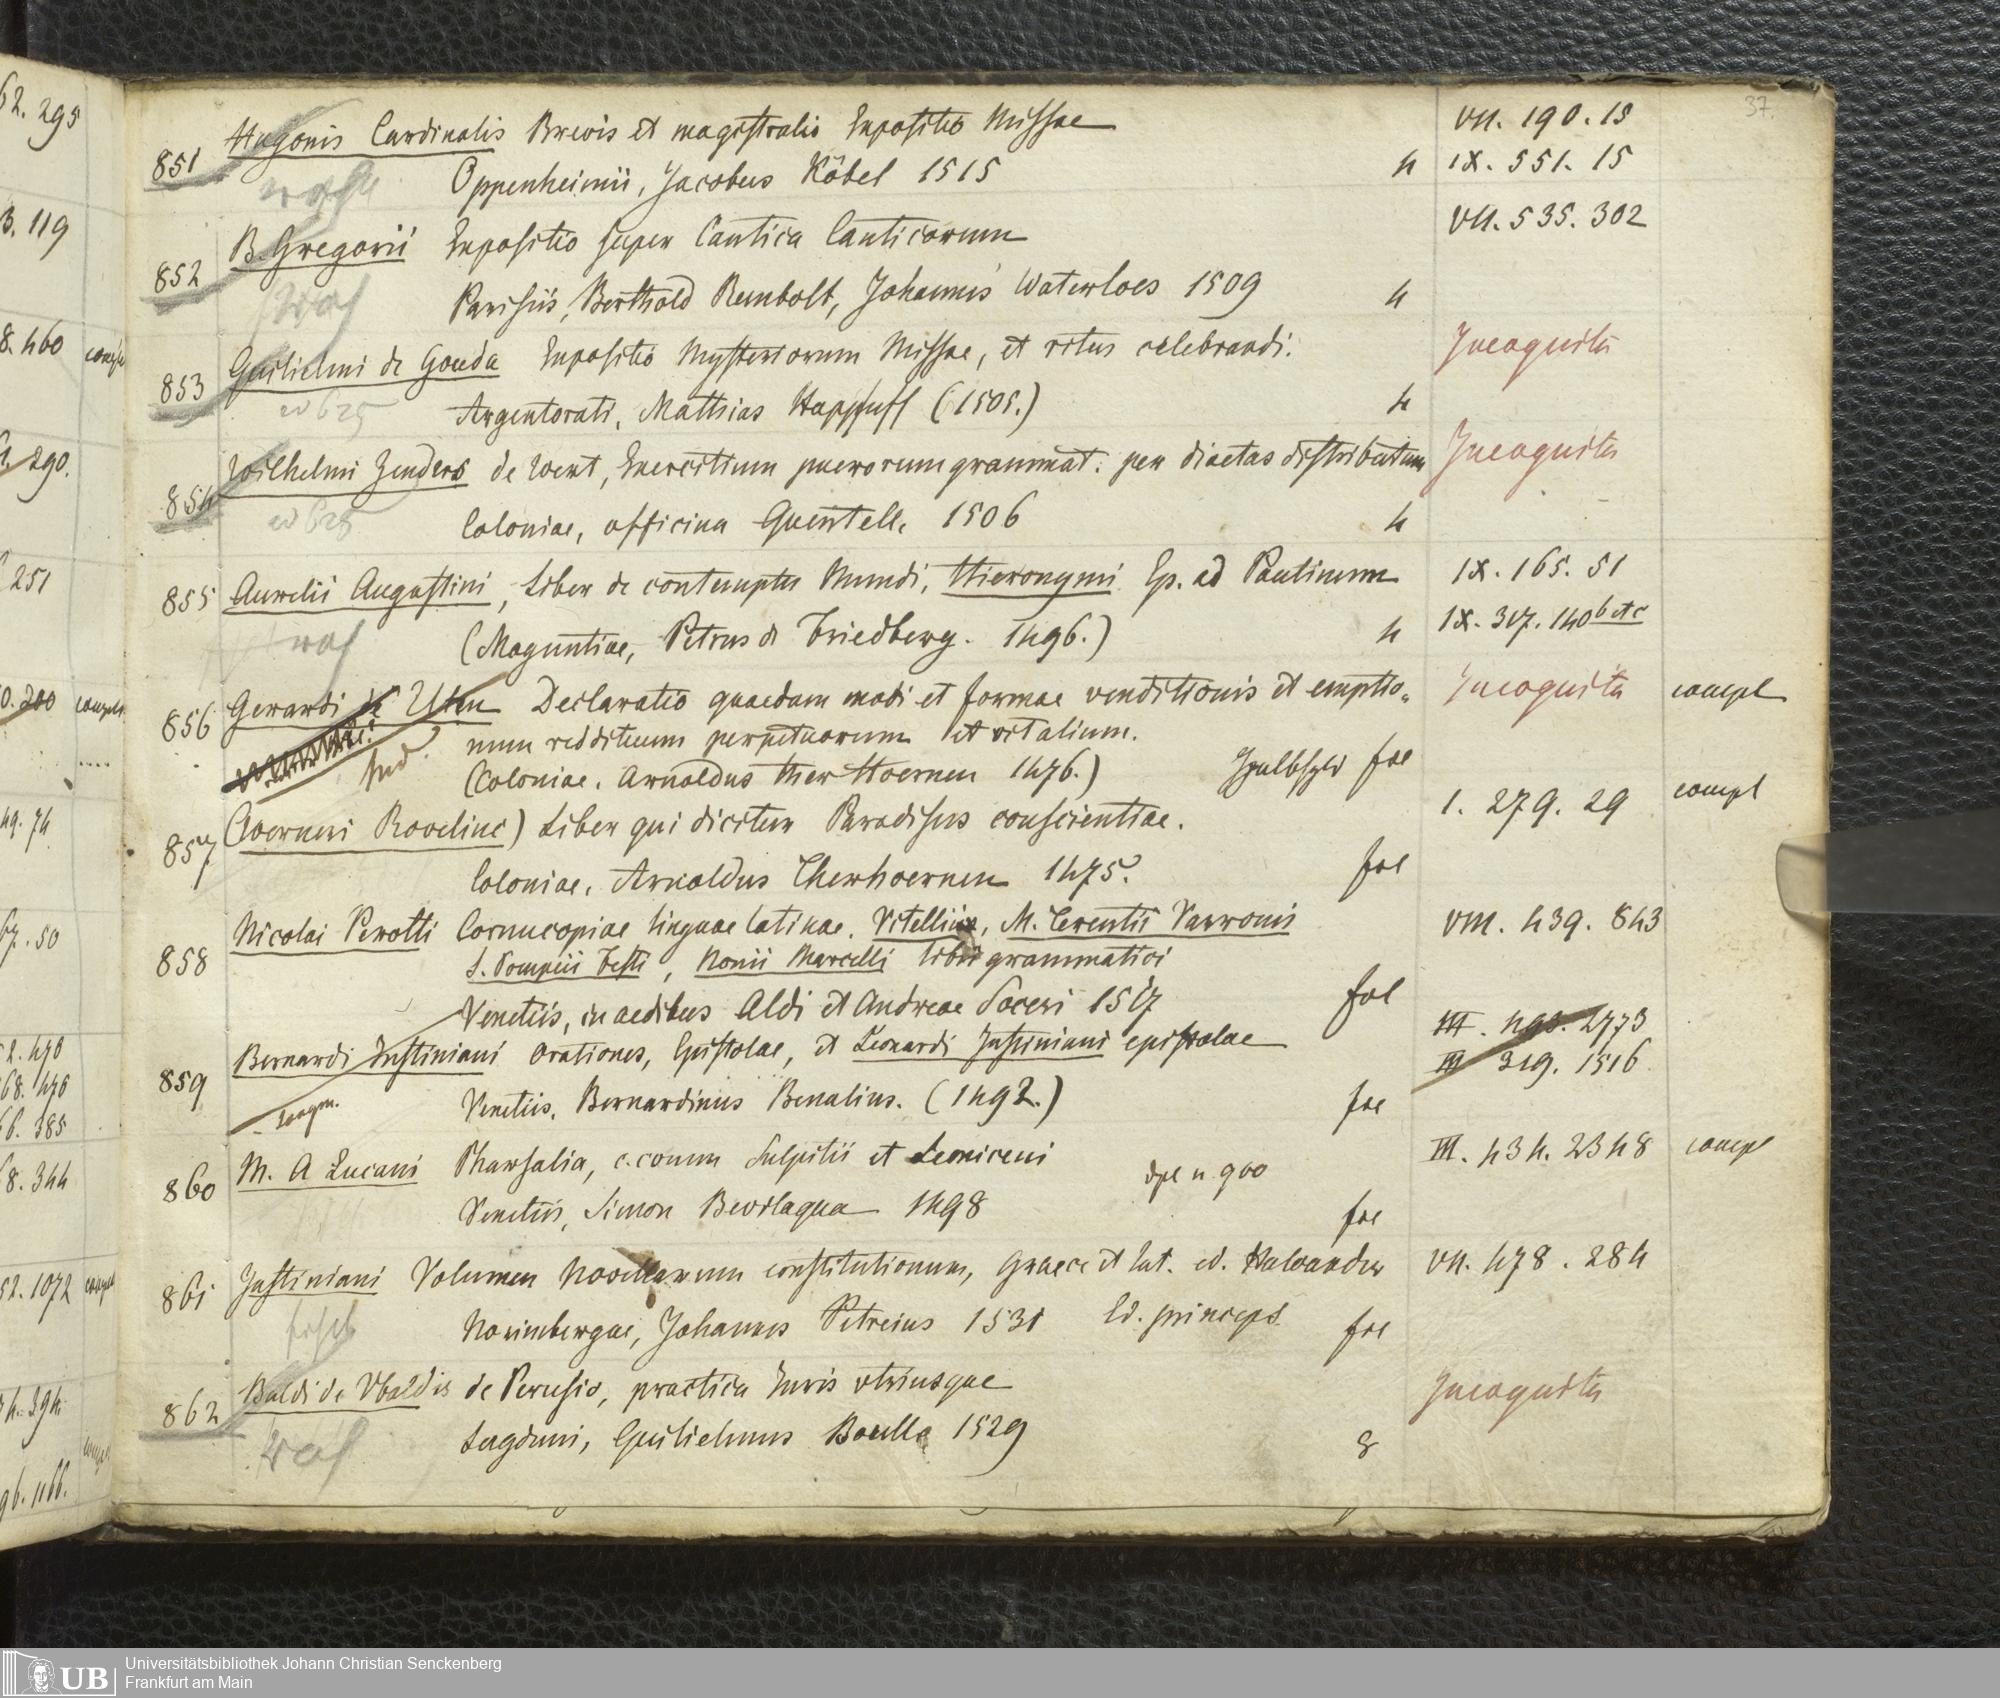 37.
851 Hugonis Cardinalis Brevis et magistralis Expositio Missae VII. 190. 15
Oppenheimii, Jacobus Köbel 1515 4 IX. 551. 15
852 B. Gregorii Expositio super Cantica Canticorum VII. 535. 302
Parisiis, Berthold Rembolt, Johannes Waterloes 1509 4
853 Guilielmi de Gouda Expositio Mysteriorum Missae, et ritus celebrandi. Incognita
Argentorati, Matthias Huppfuff (1505.) 4
854 Wilhelmi Zenders de Wert, Exercitium puerorum grammat: per diaetas distributum Incognita
Coloniae, officina Quentell. 1506 4
855 Aurelii Augustini, Liber de contemptu Mundi, Hieronymi Ep. ad Paulinum IX. 165. 51
(Moguntiae, Petrus de Friedberg. 1496.) 4 IX. 317. 140 b etc
856 Gerardi de Declaratio quaedam modi et formae venditionis et emptio- Incognita compl
num reddituum perpetuorum et vitalium.
(Coloniae. Arnoldus ther Hoernen 1476.) fol
857 (Werneri Rovelinc) Liber qui dicitur Paradisus conscientiae. I. 279. 29 compl
Coloniae. Arnoldus Therhoernen 1475. fol
858 Nicolai Perotti Cornucopiae linguae latinae. Vitellii, M. Terentii Varronis VIII. 439. 843
S. Pompeii Festi, Nonii Marcelli libri grammatici
Venetiis, in aedibus Aldi et Andreae Soceri 1517 fol
859 Bernardi Justiniani Orationes, Epistolae, et Leonardi Justiniani epistolae III. 493. 2773
III 319. 1516
Venetiis. Bernardinus Benalius. (1492.) fol
860 M. A Lucani Pharsalia, c. comm Sulpitii et Leoniceni dpl n. 900 III. 434. 2348 compl
Venetiis, Simon Bevilaqua 1498 fol
861 Justiniani Volumen Novellarum constitutionum, Graece et lat. ed. Haloander VII. 478. 284
Norimbergae, Johannes Petreius 1531 Ed. princeps fol
862 Baldi de Ubaldis de Perusio, practica Juris utriusque Incognita
Lugduni, Guilielmus Boulle 1529 8
62. 295
3. 119
8. 460
290.
251
0. 200
49. 74
67. 50
2. 478
68. 476
66. 385
8. 344
52. 1072
394.
96. 1166.
UB
Universitätsbibliothek Johann Christian Senckenberg
Frankfurt am Main